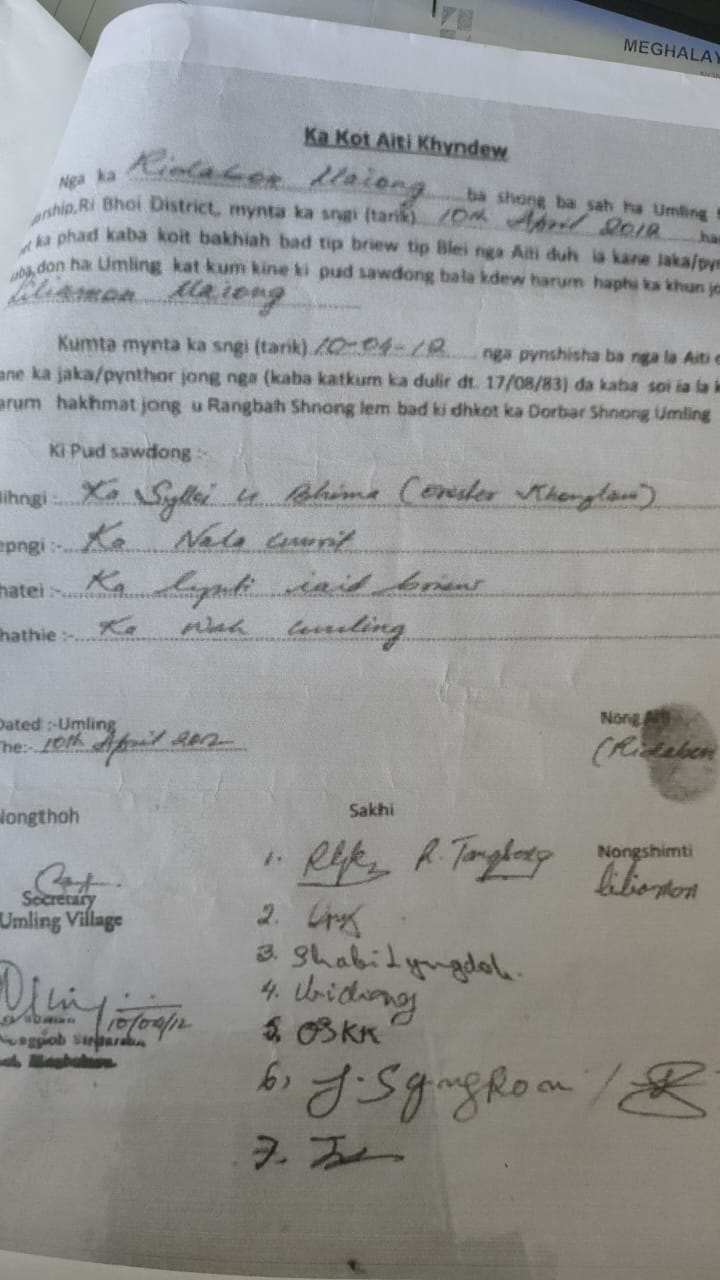 MEGHALAY
Ka Kot Aiti Khyndew
Nga ka Ridaben Maiong ba shong ba sah ha Umling
rship,Ri Bhoi District, mynta ka sngi (tarik) 10th April 2012 ha
ka phad kaba koit bakhiah bad tip briew tip Blei nga Aiti duh ia kane Jaka/pyn
don ha Umling kat kum kine ki pud sawdong bala kdew harum haphi ka khun jo
Maiong
Kumta mynta ka sngi (tarik) 10-04-12 nga pynshisha ba nga la Aiti
ane ka jaka/pynthor jong nga (kaba katkum ka dulir dt. 17/08/83) da kaba soi ia la k
arum hakhmat jong u Rangbah Shnong lem bad ki dhkot ka Dorbar Shnong Umling
Ki Pud sawdong :-
ihngi :- Ka Syllei u Bhima (
epngi :- Ka Nala
hatei :- Ka lynti iaid briew
hathie :- Ka Wah umling
Dated :-Umling
he:- 10th April 2012
Nong
(Ridaben
Nongthoh
Sakhi
1. R. Tongbong
Nongshimti
Secretary
Umling Village
2.
3. Shabi Lyngdoh.
4.
5. OSKK
10/04/12
6)
7.